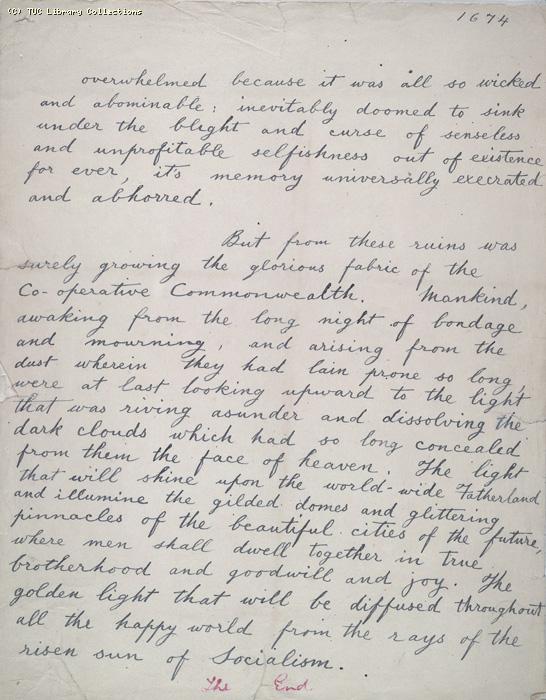 (C) TUC Library Collections
1674
overwhelmed because it was all so wicked
and abominable: inevitably doomed to sink
under the blight and curse of senseless
and unprofitable selfishness out of existence
for ever, it's memory universally execrated
and abhorred.
But from these ruins was
surely growing the glorious fabric of the
Co-operative Commonwealth. Mankind,
awaking from the long night of bondage
and mourning, and arising from the
dust wherein they had lain prone so long,
were at last looking upward to the light
that was riving asunder and dissolving the
dark clouds which had so long concealed
from them the face of heaven. The light
that will shine upon the world-wide Fatherland
and illumine the gilded domes and glittering
pinnacles of the beautiful cities of the future,
where men shall dwell together in true
brotherhood and goodwill and joy. The
golden light that will be diffused throughout
all the happy world from the rays of the
risen sun of Socialism.
The End.